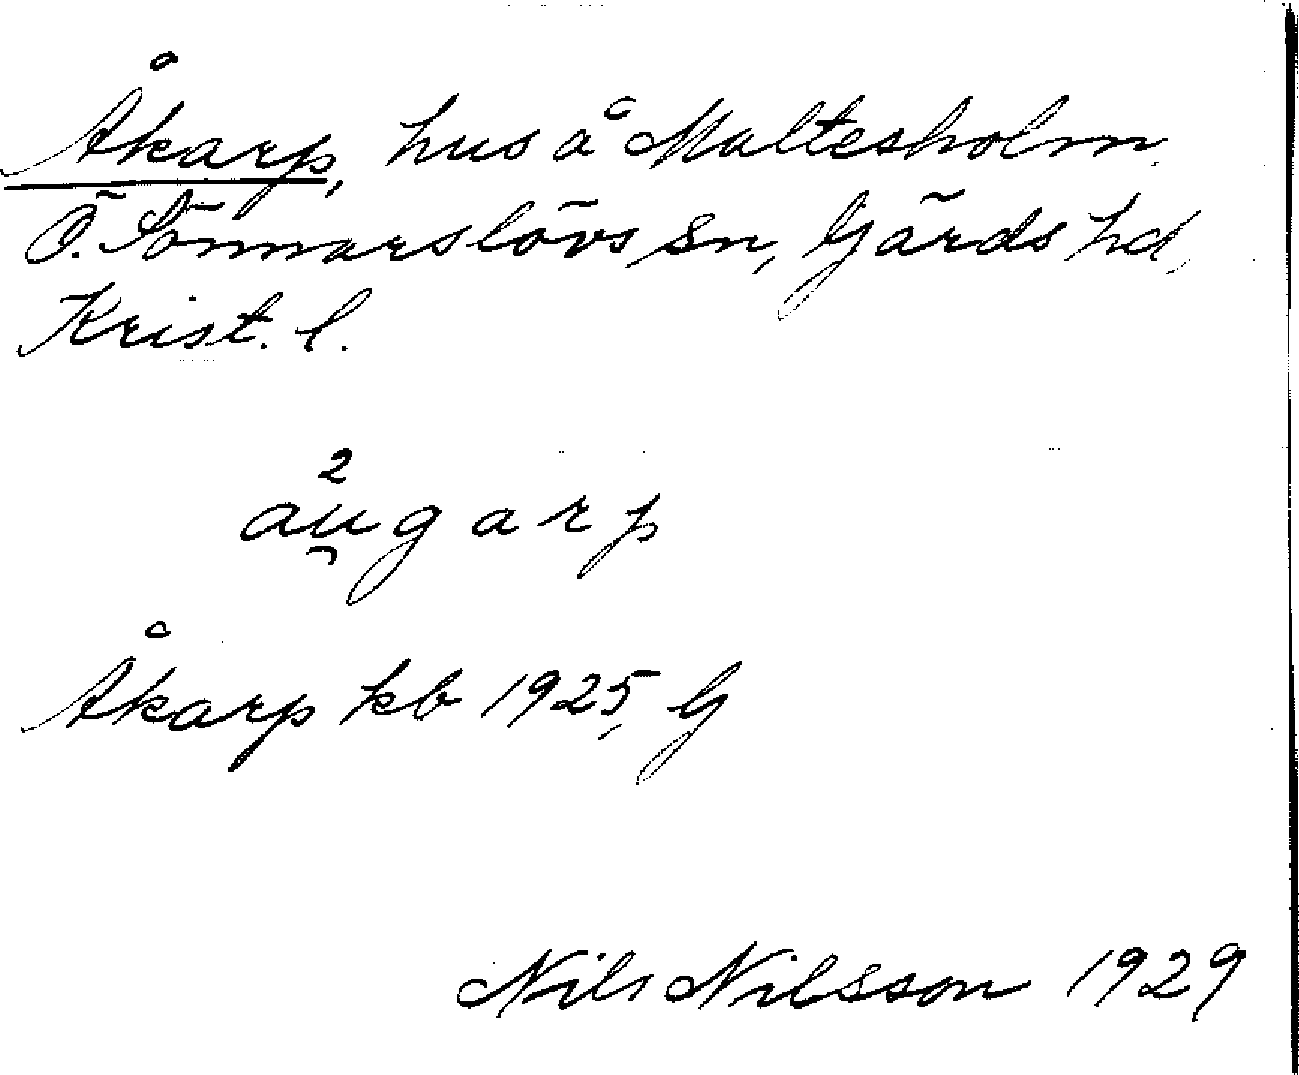 Åkarp, hus å Maltesholm
Ö. Sönnarslövs sn, Gärds hd,
Krist. l.
au̯²garp
Åkarp kb 1925, G
Nils Nilsson 1929